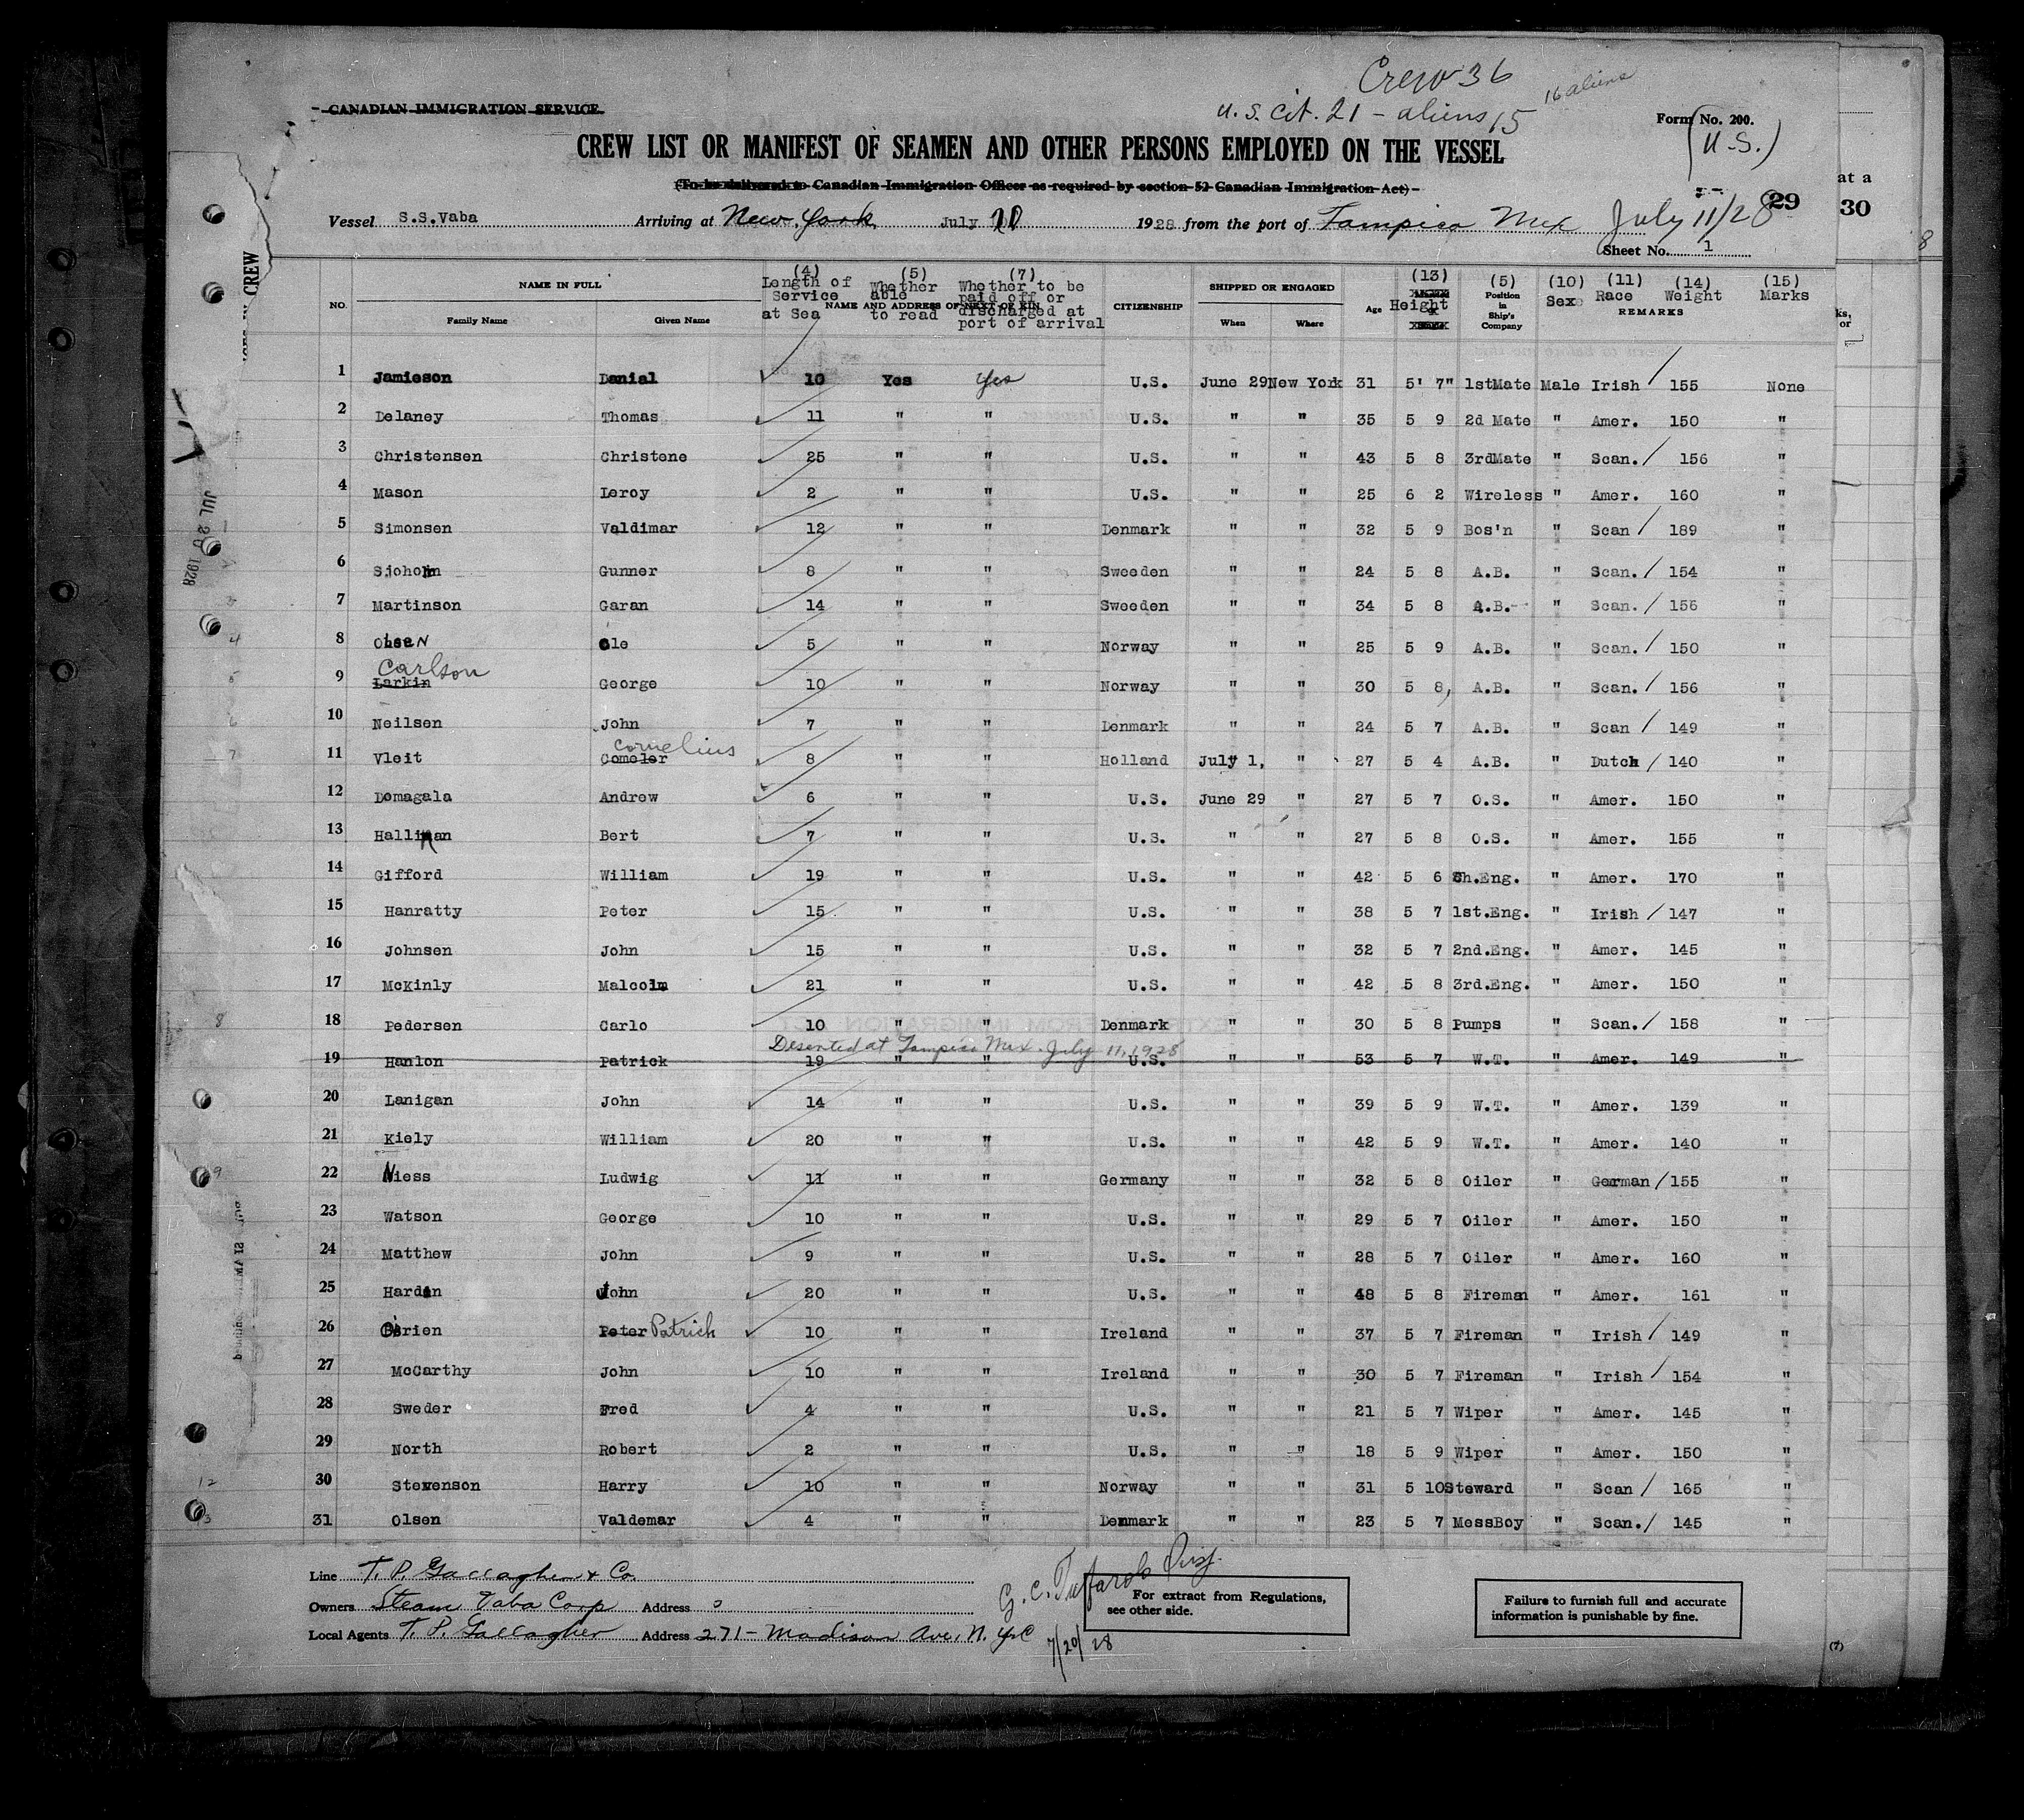 Crew 36
16 aliens
CANADIAN IMMIGRATION SERVICE
U.S. Cit. 21 - aliens 15
Form No. 200.
(U.S.)
CREW LIST OR MANIFEST OF SEAMEN AND OTHER PERSONS EMPLOYED ON THE VESSEL
(To be delivered to Canadian Immigration Officer as required by section 52 Canadian Immigration Act)
29
at a
30
Vessel S.S.Vaba Arriving at New York, July 1928 from the port of Tampico Mex July 11/28
Sheet No. 1
NO. NAME IN FULL Family Name Given Name (4) Length of Service at Sea (5) Whether able to read (7) Whether to be paid off or discharged at port of arrival NAME AND ADDRESS OF NEXT OF KIN CITIZENSHIP SHIPPED OR ENGAGED When Where Age (13) Height (5) Position in Ship's Company (10) Sex (11) Race (14) Weight (15) Marks REMARKS
1 Jamieson Danial 10 Yes Yes U.S. June 29 New York 31 5' 7" 1stMate Male Irish / 155 None
2 Delaney Thomas 11 " " U.S. " " 35 5 9 2d Mate " Amer. 150 "
3 Christensen Christene 25 " " U.S. " " 43 5 8 3rdMate " Scan. / 156 "
4 Mason Leroy 2 " " U.S. " " 25 6 2 Wireless " Amer. 160 "
5 Simonsen Valdimar 12 " " Denmark " " 32 5 9 Bos'n " Scan / 189 "
6 Sjoholm Gunner 8 " " Sweeden " " 24 5 8 A.B. " Scan. / 154 "
7 Martinson Garan 14 " " Sweeden " " 34 5 8 A.B. " Scan. / 156 "
8 Olsen Ole 5 " " Norway " " 25 5 9 A.B. " Scan. / 150 "
9 Larkin Carlson George 10 " " Norway " " 30 5 8, A.B. " Scan. / 156 "
10 Neilsen John 7 " " Denmark " " 24 5 7 A.B. " Scan / 149 "
11 Vleit Comeler Cornelius 8 " " Holland July 1, " 27 5 4 A.B. " Dutch / 140 "
12 Domagala Andrew 6 " " U.S. June 29 " 27 5 7 O.S. " Amer. 150 "
13 Hallinan Bert 7 " " U.S. " " 27 5 8 O.S. " Amer. 155 "
14 Gifford William 19 " " U.S. " " 42 5 6 Ch.Eng. " Amer. 170 "
15 Hanratty Peter 15 " " U.S. " " 38 5 7 1st.Eng. " Irish / 147 "
16 Johnsen John 15 " " U.S. " " 32 5 7 2nd.Eng. " Amer. 145 "
17 McKinly Malcolm 21 " " U.S. " " 42 5 8 3rd.Eng. " Amer. 150 "
18 Pedersen Carlo 10 " " Denmark " " 30 5 8 Pumps " Scan. / 158 "
Deserted at Tampico Mex. July 11, 1928
19 Hanlon Patrick 19 " " U.S. " " 53 5 7 W.T. " Amer. 149 "
20 Lanigan John 14 " " U.S. " " 39 5 9 W.T. " Amer. 139 "
21 Kiely William 20 " " U.S. " " 42 5 9 W.T. " Amer. 140 "
22 Niess Ludwig 11 " " Germany " " 32 5 8 Oiler " German / 155 "
23 Watson George 10 " " U.S. " " 29 5 7 Oiler " Amer. 150 "
24 Matthew John 9 " " U.S. " " 28 5 7 Oiler " Amer. 160 "
25 Hardin John 20 " " U.S. " " 48 5 8 Fireman " Amer. 161 "
26 O'Brien Peter Patrick 10 " " Ireland " " 37 5 7 Fireman " Irish / 149 "
27 McCarthy John 10 " " Ireland " " 30 5 7 Fireman " Irish / 154 "
28 Sweder Fred 4 " " U.S. " " 21 5 7 Wiper " Amer. 145 "
29 North Robert 2 " " U.S. " " 18 5 9 Wiper " Amer. 150 "
30 Stevenson Harry 10 " " Norway " " 31 5 10 Steward " Scan / 165 "
31 Olsen Valdemar 4 " " Denmark " " 23 5 7 MessBoy " Scan. / 145 "
Line T. P. Gallagher & Co.
Owners Steam Vaba Corp Address
Local Agents T. P. Gallagher Address 271 - Madison Ave, N.Y.C
7/20/28
For extract from Regulations, see other side.
Failure to furnish full and accurate information is punishable by fine.
(7)
JUL 20 1928
CREW